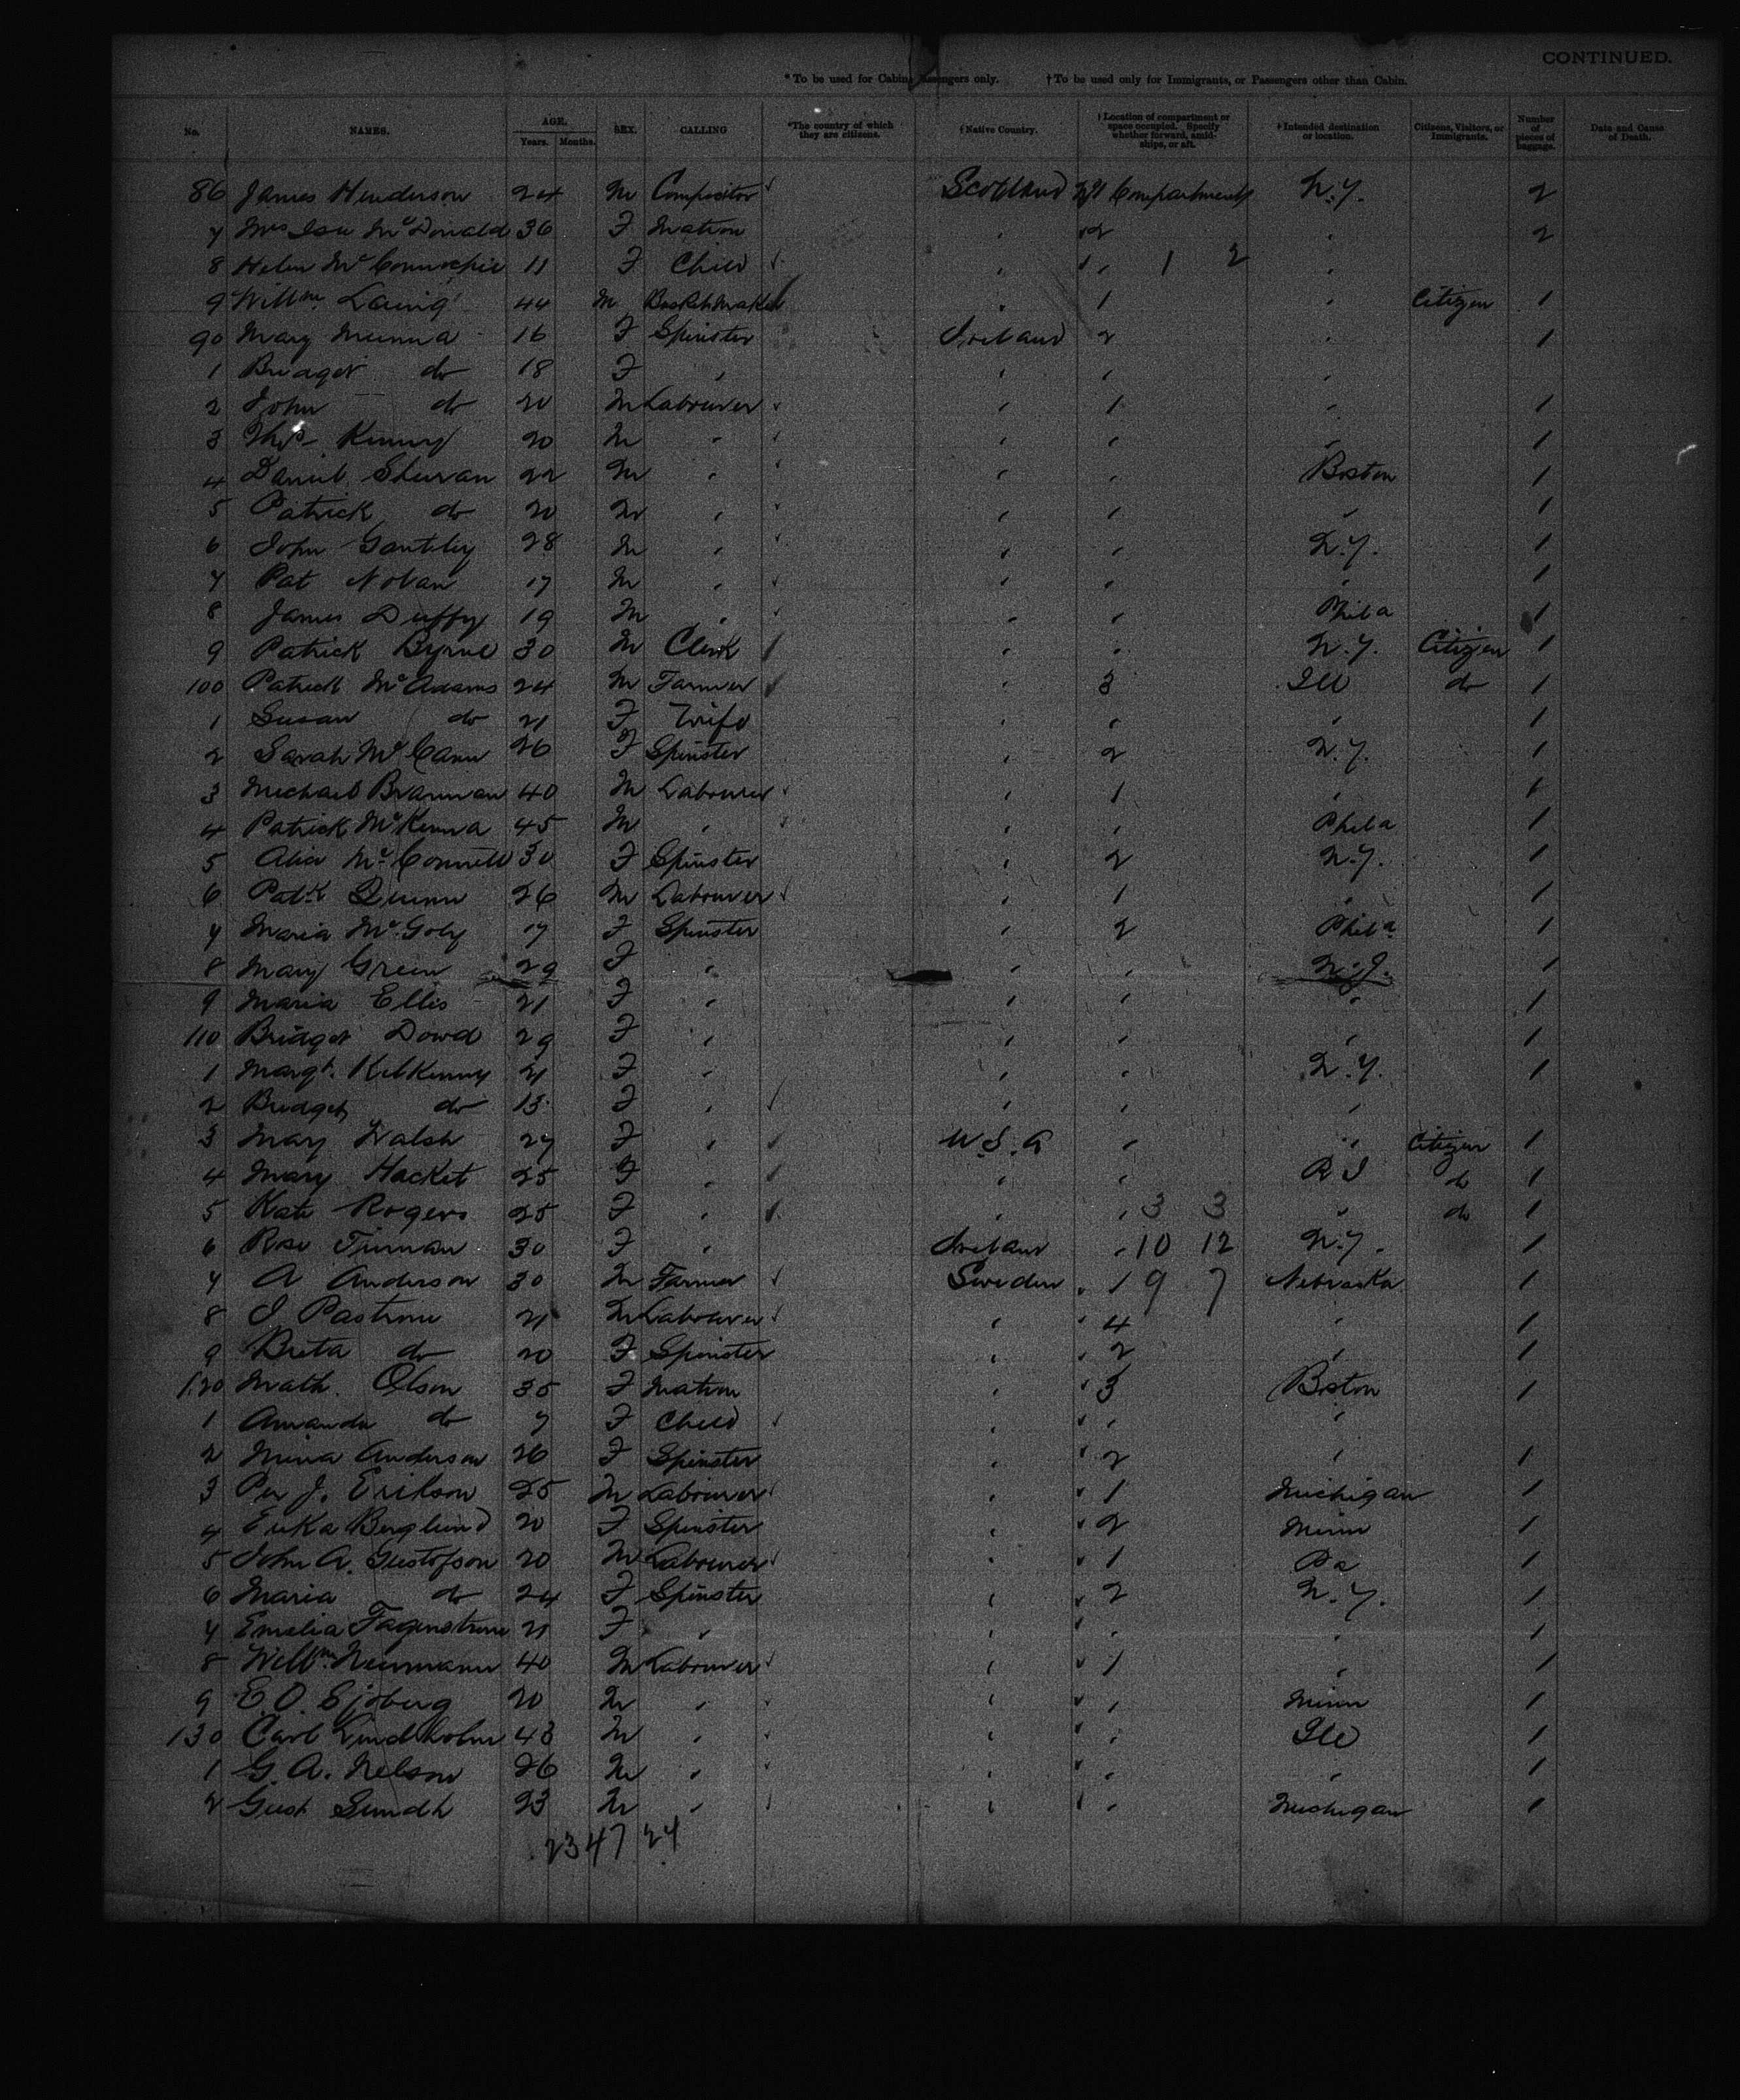 CONTINUED.
* To be used for Cabin Passengers only. † To be used only for Immigrants, or Passengers other than Cabin.
No. NAMES. AGE. Years. Months. SEX. CALLING *The country of which they are citizens. †Native Country. †Location of compartment or space occupied. Specify whether forward, amidships, or aft. †Intended destination or location. Citizens, Visitors, or Immigrants. Number of pieces of baggage. Date and Cause of Death.
86 James Henderson 24 M Compositor Scotland No 1 Compartment N.Y. 2
7 Mrs Isa McDonald 36 F Matron " 2 " 2
8 Helen McConnochie 11 F Child " " 1 2 "
9 Willm. Laing 44 M Basketmaker " 1 " Citizen 1
90 Mary 16 F Spinster Ireland 2 " 1
1 Bridget do 18 F " " " "
2 John do 20 M Labourer " 1 " 1
3 Thos Kenny 20 M " " " " 1
4 Daniel 22 M " " " Boston 1
5 Patrick do 20 M " " " " 1
6 John 28 M " " " N.Y. 1
7 Pat Nolan 17 M " " " " 1
8 James Duffy 19 M " " " Phila 1
9 Patrick Byrne 30 M Clerk " " N.Y. Citizen 1
100 Patrick McAdams 24 M Farmer " 3 Ill do 1
1 Susan do 21 F Wife " " " 1
2 Sarah McCann 26 F Spinster " 2 N.Y. 1
3 Michael Brannan 40 M Labourer " 1 " 1
4 Patrick McKenna 45 M " " " Phila 1
5 Alice McConnell 30 F Spinster " 2 N.Y. 1
6 Patk Quinn 26 M Labourer " 1 " 1
7 Maria 17 F Spinster " 2 Phila 1
8 Mary Green 29 F " " " N.J. 1
9 Maria Ellis 21 F " " " " 1
110 Bridget Dowd 29 F " " " " 1
1 Margt. Kilkenny 21 F " " " N.Y. 1
2 Bridget do 13 F " " " "
3 Mary Walsh 27 F " U.S.A " " Citizen 1
4 Mary Hacket 25 F " " " R I do 1
5 Kate Rogers 25 F " " " 3 3 " do 1
6 Rose 30 F " Ireland " 10 12 N.Y. 1
7 A Anderson 30 M Farmer Sweden " 1 9 7 Nebraska 1
8 21 M Labourer " " 4 " 1
9 Brita do 20 F Spinster " " 2 " 1
120 Math. Olson 35 F Matron " " 3 Boston 1
1 Amanda do 7 F Child " " " "
2 Mina Anderson 26 F Spinster " " 2 " 1
3 Per J. Erikson 25 M Labourer " " 1 Michigan 1
4 Erika Berglund 20 F Spinster " " 2 Minn 1
5 John A. Gustofson 20 M Labourer " " 1 Pa 1
6 Maria do 24 F Spinster " " 2 N.Y. 1
7 Emelia 21 F " " " " " 1
8 Willm Neumann 40 M Labourer " " 1 " 1
9 E.O. Sjoberg 20 M " " " " Minn 1
130 Carl Lindholm 43 M " " " " Ill 1
1 G. A. Nelson 26 M " " " " " 1
2 Gust Sundh 23 M " " " " Michigan 1
23 47 24